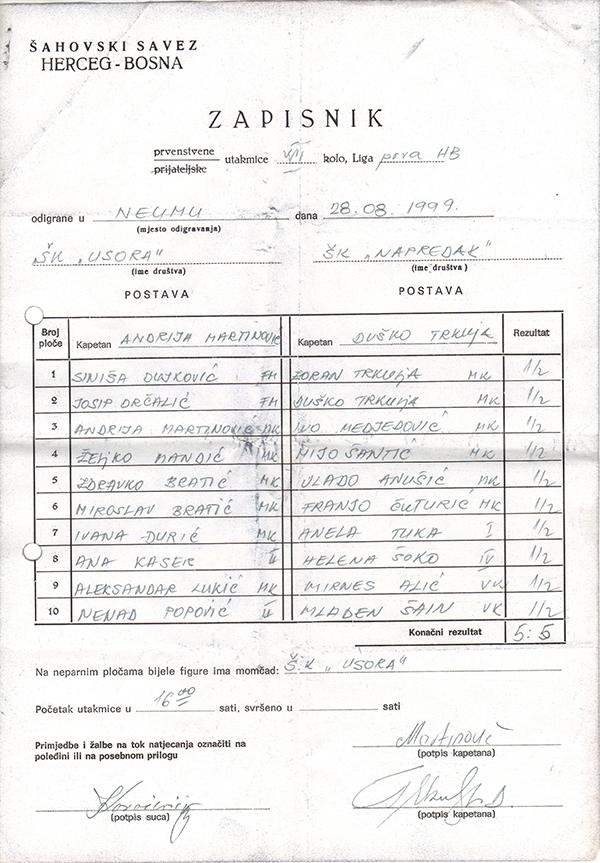 ŠAHOVSKI SAVEZ
HERCEG-BOSNA
ZAPISNIK
prvenstvene
prijateljske utakmice VII kolo, Liga prva HB
odigrane u NEUMU dana 28.08.1999.
(mjesto odigravanja)
ŠK „USORA" ŠK „NAPREDAK"
(ime društva) (ime društva)
POSTAVA POSTAVA
Broj ploče Kapetan ANDRIJA MARTINOVIĆ Kapetan DUŠKO TRKULJA Rezultat
1 SINIŠA DUJKOVIĆ FM ZORAN TRKULJA MK 1/2
2 JOSIP DRČALIĆ FM DUŠKO TRKULJA MK 1/2
3 ANDRIJA MARTINOVIĆ MK IVO MEDJEDOVIĆ MK 1/2
4 ŽELJKO MANDIĆ MK MIJO ŠANTIĆ MK 1/2
5 ZDRAVKO BRATIĆ MK VLADO ANUŠIĆ MK 1/2
6 MIROSLAV BRATIĆ MK FRANJO ČUTURIĆ MK 1/2
7 IVANA ĐURIĆ MK ANELA TUKA I 1/2
8 ANA KASER II HELENA ŠOKO IV 1/2
9 ALEKSANDAR LUKIĆ MK MIRNES ALIĆ VK 1/2
10 NENAD POPOVIĆ II MLADEN ŠAIN VK 1/2
Konačni rezultat 5:5
Na neparnim pločama bijele figure ima momčad: Š.K „USORA"
Početak utakmice u 16 00 sati, svršeno u sati
Primjedbe i žalbe na tok natjecanja označiti na
poleđini ili na posebnom prilogu
Martinović
(potpis kapetana)
(potpis suca) (potpis kapetana)